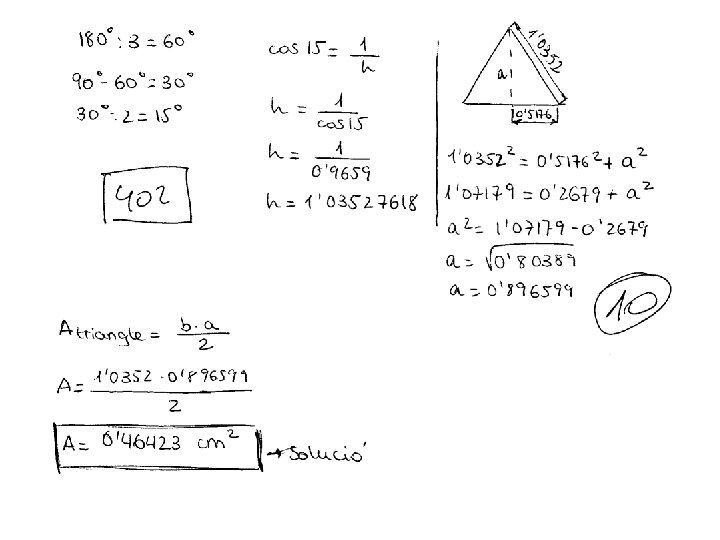 180° : 3 = 60°
90° - 60° = 30°
30° : 2 = 15°
402
cos 15 = 1/h
h = 1/cos 15
h = 1/0'9659
h = 1'03527618
1'0352
a
0'5176
1'0352² = 0'5176² + a²
1'07179 = 0'2679 + a²
a² = 1'07179 - 0'2679
a = √0'80389
a = 0'896599
10
A triangle = b · a / 2
A = 1'0352 · 0'896599 / 2
A = 0'46423 cm² → Solució